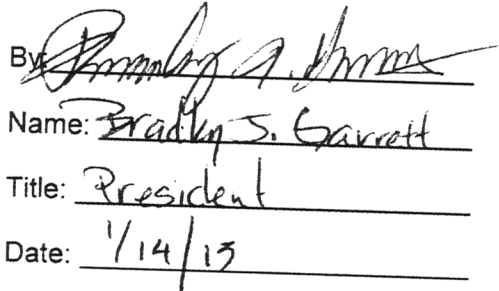 By:
Name: Bradley J. Garrett
Title: President
Date: 1/14/13